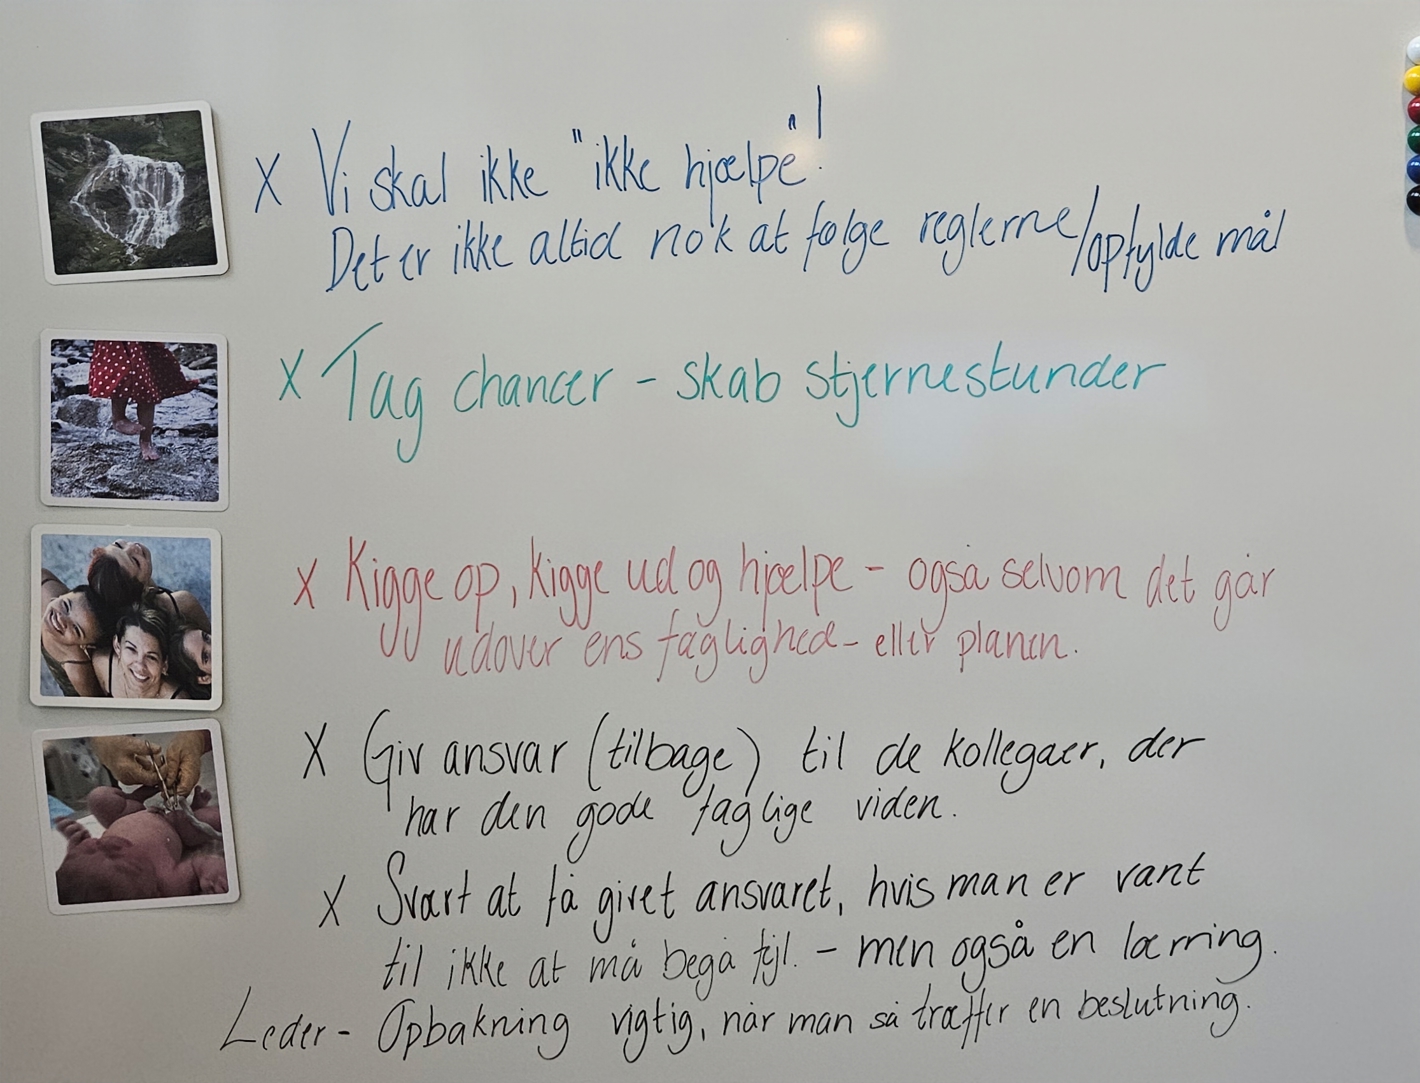 X Vi skal ikke "ikke hjælpe"!
Det er ikke altid nok at følge reglerne/opfylde mål
X Tag chancer - skab stjernestunder
X Kigge op, kigge ud og hjælpe - også selvom det går
udover ens faglighed - eller planen.
X Giv ansvar (tilbage) til de kollegaer, der
har den gode faglige viden.
X Svært at få givet ansvaret, hvis man er vant
til ikke at må begå fejl. - men også en lærring.
Leder - Opbakning vigtig, når man så træffer en beslutning.